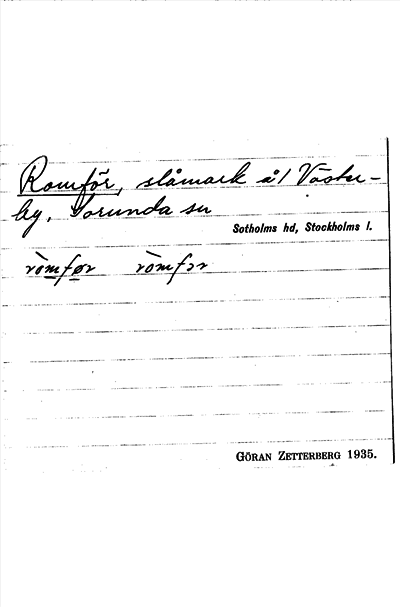 Romför, slåmark å/ Väster-
by, Sorunda sn
Sotholms hd, Stockholms l.
ròmfør ròmfɔr
GÖRAN ZETTERBERG 1935.